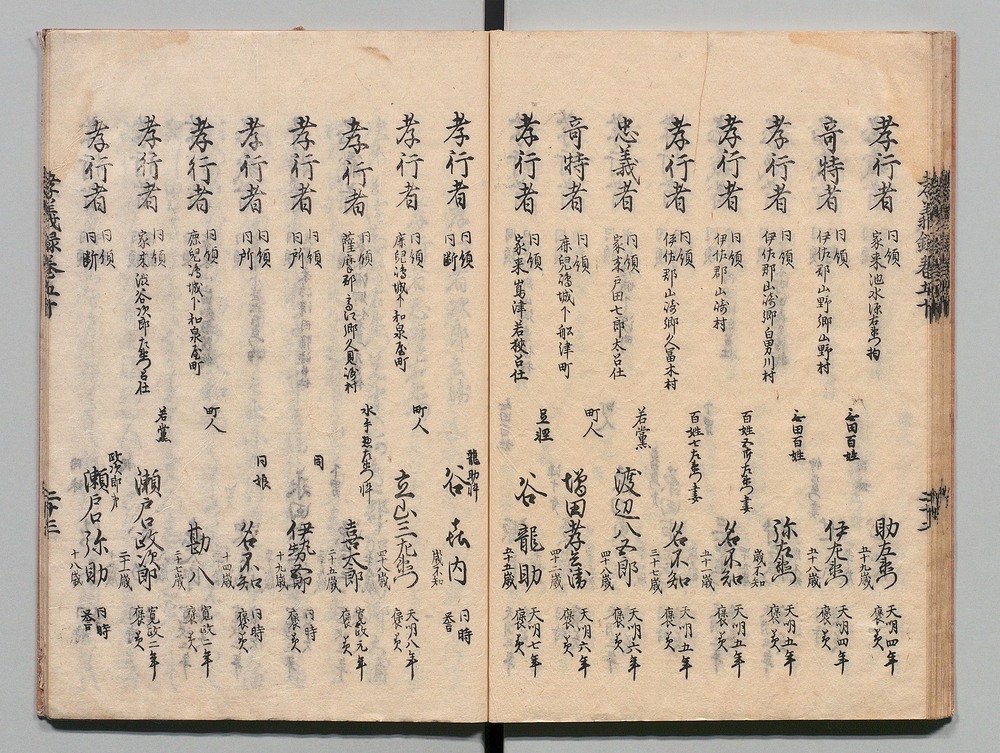 孝行者 同領 家来池水源右衛門拘 無田百姓 助左衛門 五十八歳 天明四年 褒美
奇特者 同領 伊佐郡山野郷山野村 無田百姓 伊左衛門 五十八歳 天明四年 褒美
孝行者 同領 伊佐郡山崎郷白男川村 弥左衛門 歳不知 天明五年 褒美
孝行者 同領 伊佐郡山崎村 妻 名不知 五十一歳 天明五年 褒美
孝行者 同領 伊佐郡山崎郷久冨木村 百姓七左衛門妻 名不知 三十七歳 天明五年 褒美
忠義者 同領 家来戸田七郎太召仕 若黨 渡辺八五郎 四十八歳 天明六年 褒美
奇特者 同領 鹿児嶋城下船津町 町人 増田孝兵衛 四十二歳 天明六年 褒美
孝行者 同領 家来嶌津若狭召仕 足軽 谷龍助 五十五歳 天明七年 褒美
孝行者 同領 同断 龍助忰 谷喜内 歳不知 同時
孝行者 同領 鹿児嶋城下和泉屋町 町人 立山三左衛門 四十八歳 天明八年 褒美
孝行者 同領 薩摩郡高江郷久見崎村 水手 忰 喜太郎 二十五歳 寛政元年 褒美
孝行者 同領 同所 同 伊勢五郎 十九歳 同時 褒美
孝行者 同領 同所 同娘 名不知 十四歳 同時 褒美
孝行者 同領 鹿児嶋城下和泉屋町 町人 勘八 三十七歳 寛政二年 褒美
孝行者 同領 家来渋谷次郎左衛門召仕 若黨 瀬戸口政次郎 二十一歳 寛政二年 褒美
孝行者 同領 同断 政次郎弟 瀬戸口弥助 十八歳 同時
孝義録巻五十